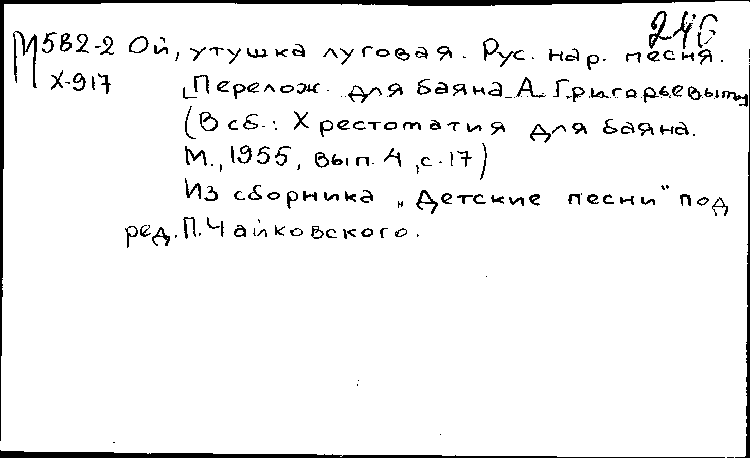 240
М582-2 Ой, утушка луговая. Рус. нар. песня.
Х-917 [Перелож. для баяна А. Григорьевым]
(В сб.: Хрестоматия для баяна.
М., 1955, вып. 4, с. 17)
Из сборника „Детские песни" под
ред. П. Чайковского.